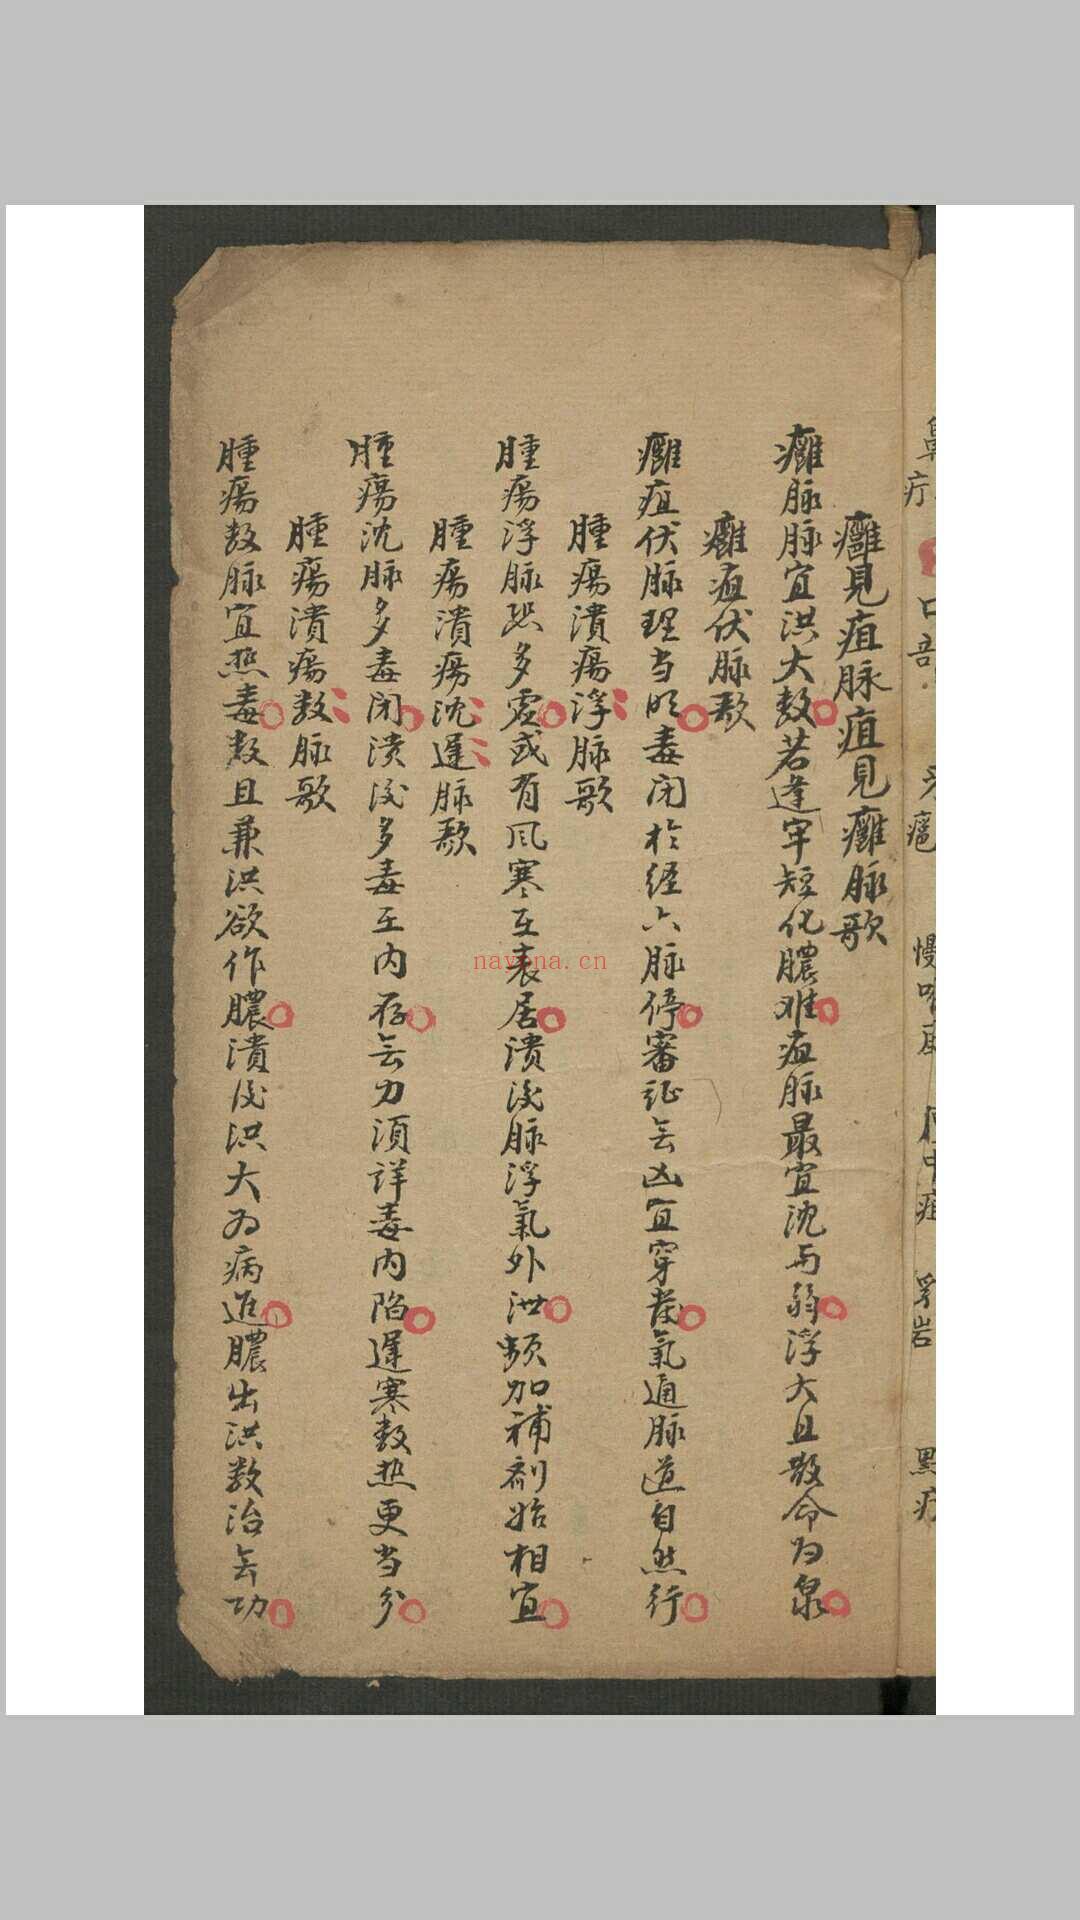 癰見疽脉疽見癰脉歌
癰脉脉宜洪大数若逢牢短化膿难疽脉最宜沈与弱浮大且散命为泉
癰疽伏脉歌
癰疽伏脉理当明毒闭於经六脉停審证無凶宜穿發氣通脉道自然行
腫瘍潰瘍浮脉歌
腫瘍浮脉恐多虚或有风寒在表居潰後脉浮氣外泄频加補劑始相宜
腫瘍潰瘍沈遲脉歌
腫瘍沈脉多毒闭潰後多毒在内存無力須詳毒内陷遲寒数热更当分
腫瘍潰瘍数脉歌
腫瘍数脉宜热毒数且兼洪欲作膿潰後洪大为病進膿出洪数治無功
nayona.cn